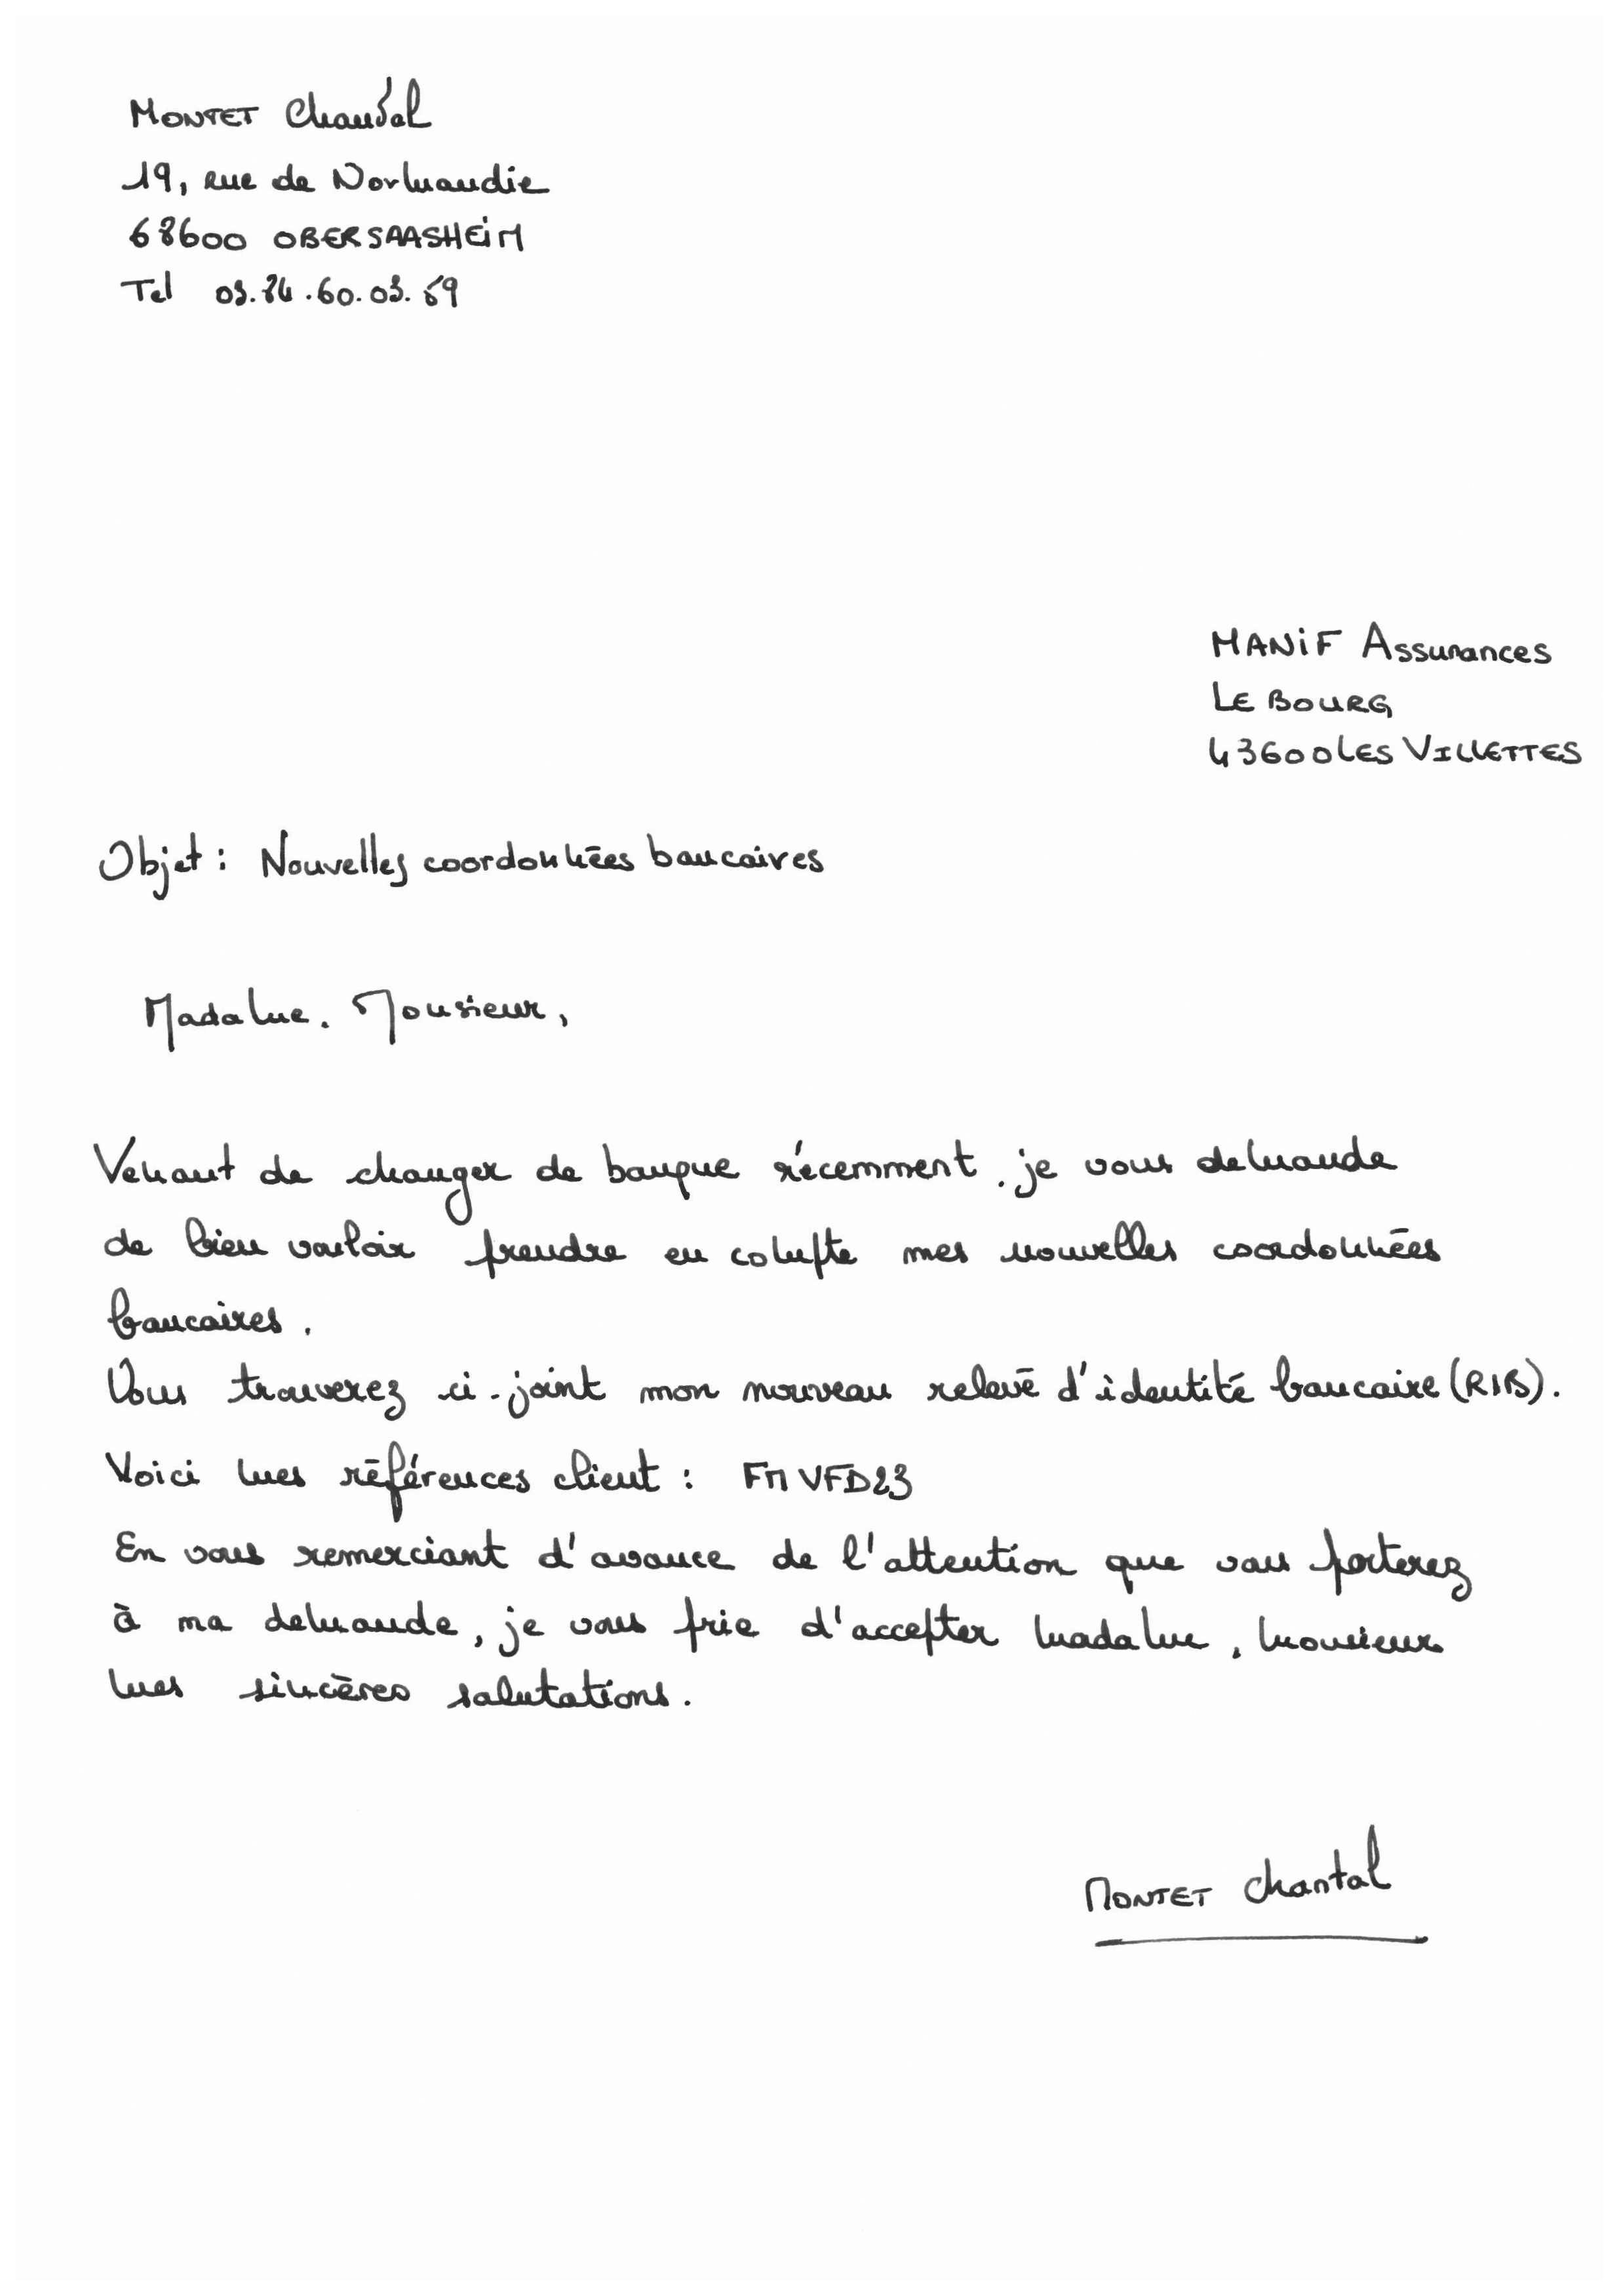 MONTET Chantal
19, rue de Normandie
68600 OBERSAASHEIM
Tel 03.84.60.03.69
MANIF Assurances
LE BOURG
43600 LES VILLETTES
Objet : Nouvelles coordonnées bancaires
Madame. Monsieur,
Venant de changer de banque récemment. je vous demande
de bien vouloir prendre en compte mes nouvelles coordonnées
bancaires.
Vous trouverez ci-joint mon nouveau relevé d'identité bancaire (RIB).
Voici mes références client : FMVFD23
En vous remerciant d'avance de l'attention que vous porterez
à ma demande, je vous prie d'accepter madame, monsieur
mes sincères salutations.
MONTET Chantal